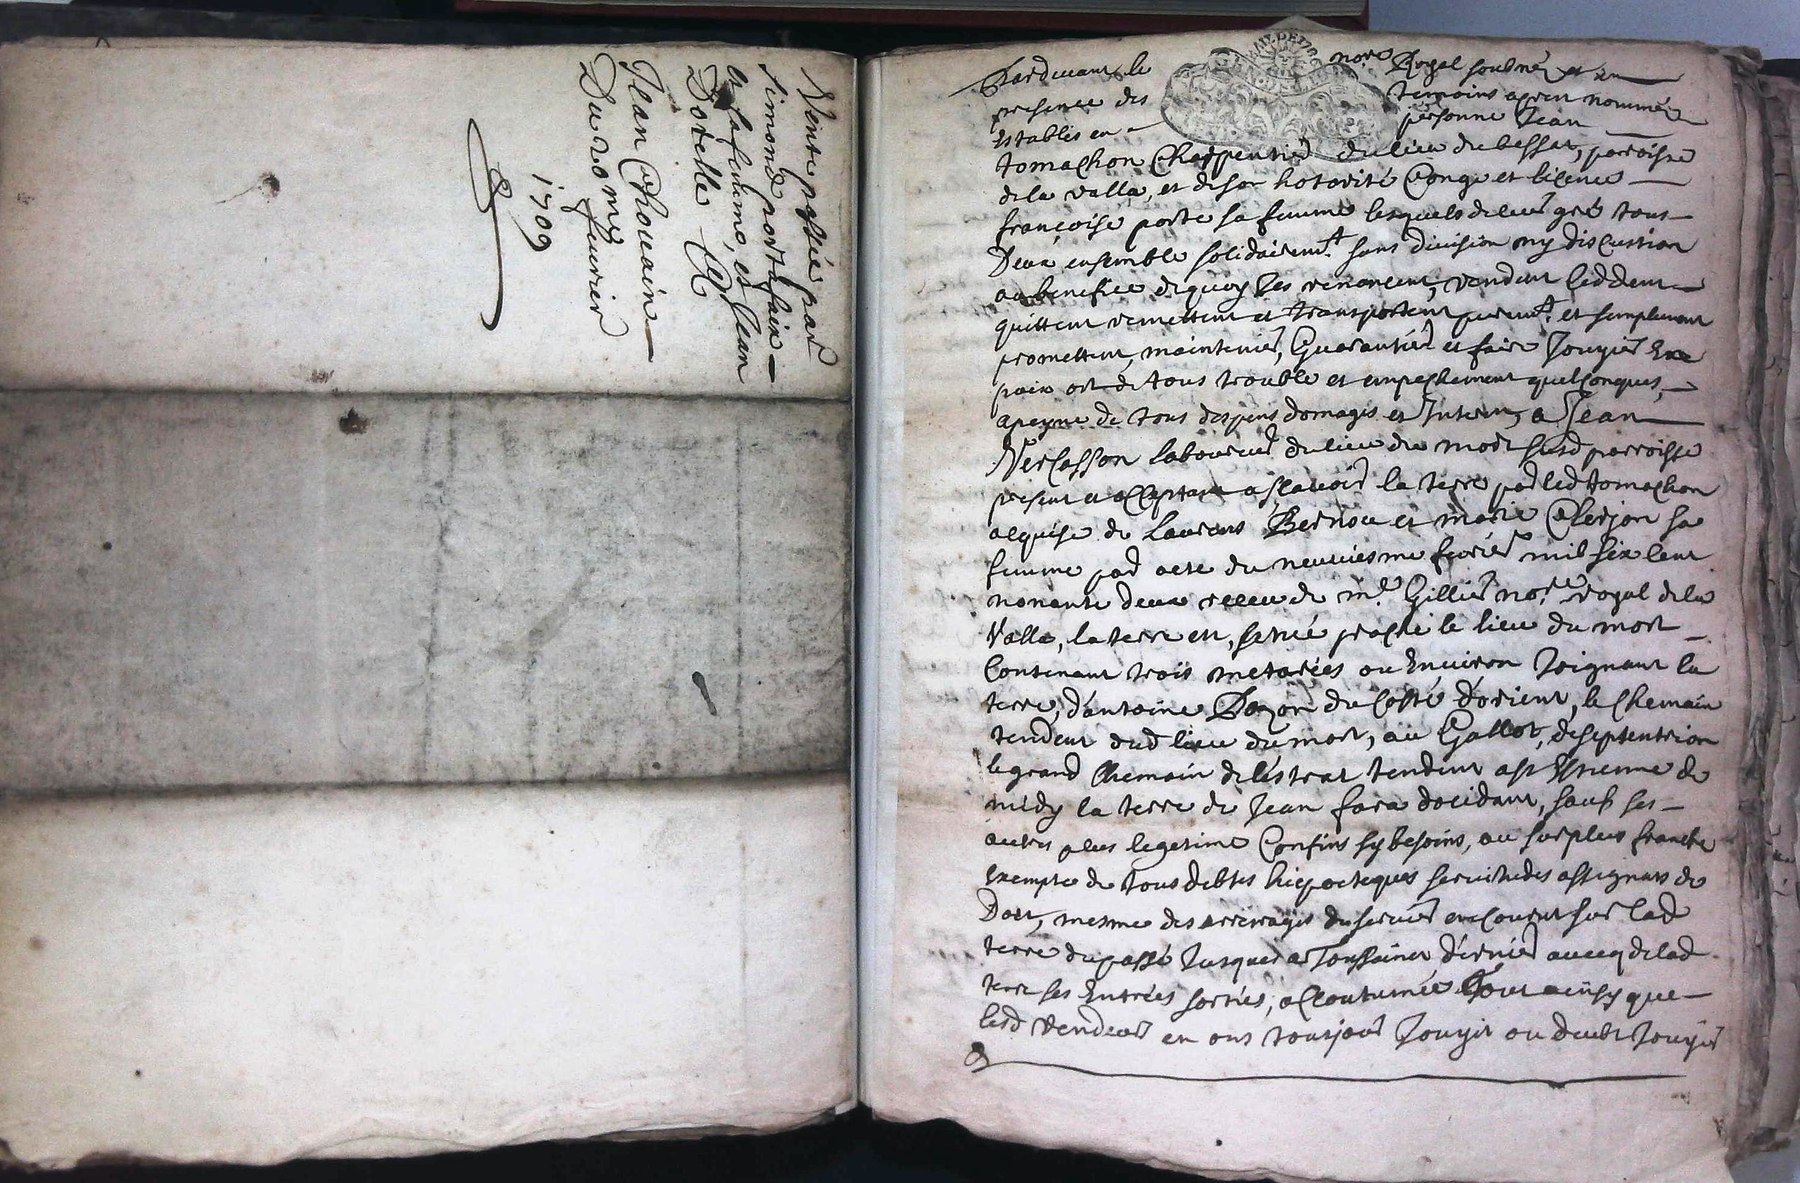 Vente passée par
Simond portefaix
et sa femme, et Jean
Dorelle A
Jean Chouain
Du 20 me feuvrier
1709
Pardevant le nore Royal soubné et en
presence des temoins apres nommés
Establis en personne Jean
tomachon Charpentier du lieu du bessat, parroisse
de la valla, et de son hotorité Conge et licence
françoise porte sa femme lesquels de leur gré tous
Deux ensemble solidairemt. sans division ny discution
au benefice de quoy Ils renoncent, vendent ceddent
quittent remettent et transportent puremt. et simplement
promettent, maintenir, Guarantir et faire Jouyir En
paix et de tous trouble et empechement quelconques,
apeyne de tous despens domages et Interets, a Jean
Verchasson laboureur du lieu du mort susd parroisse
present et acceptant asscavoir la terre par led tomachon
acquise de Laurens Bernou et marie Cherjon sa
femme par acte du neuviesme fevrier mil six cent
nonante deux receu de me. Gillier nore. royal de la
Valla, la terre est, scitué proche le lieu du mort
Contenant trois metarées ou Environ Joignant la
terre, d'antoine Dozon du costé d'orient, le chemain
tendent dud lieu du mort, au Gallot, de septentrion
le grand Chemain de l'estrat tendent a st Estienne de
midy la terre de Jean fara docidant, sauf ses
autres plus legetime Confins sy besoins, au surplus franche
exempte de tous debtes hiepoteques servitudes assignats de
Dott, mesme des arrerages du servis encourut sur lad
terre du passé Jusques a Toussaint d'érnier avecq de lad
terre ses Entrées sorties, accoutumée Tout ainsy que
lesd Vendeurs en ont tousjours Jouyit ou deubt Jouyir